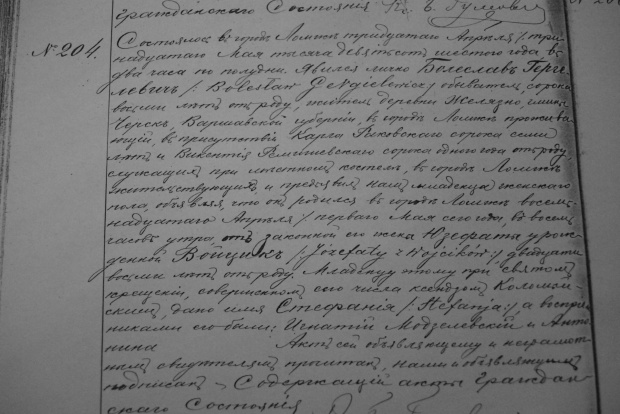 Гражданскаго Состоянія
№ 204.
Состоялось въ городѣ Ломжѣ тридцатаго Апрѣля / три
надцатаго Мая тысяча девятьсотъ шестого года въ
два часа по полудни. Явился лично Болеславъ Герге
левичъ / Bolesław Gergielewicz / обыватель, сорока
восьми лѣтъ отъ роду, житель деревни Желязно, гмины
Черскъ, Варшавской губерніи, въ городѣ Ломжѣ прожива
ющій, въ присутствіи Карла сорока семи
лѣтъ и Викентія сорока одного года отъ роду,
служащихъ при костелѣ, въ городѣ Ломжѣ
жительствующихъ, и предъявилъ намъ младенца женскаго
пола, объявляя, что онъ родился въ городѣ Ломжѣ восем
надцатаго Апрѣля / перваго Мая сего года, въ восемь
часовъ утра, отъ законной его жены Юзефаты урож
денной Войцикъ / Józefaty z Wojcików / двадцати
восьми лѣтъ отъ роду. Младенцу этому при Святомъ
крещеніи, совершенномъ сего числа ксендзомъ
дано имя Стефанія / Stefanja /, а воспрі
никами его были: Игнатій Модзелевскій и Анто
нина Актъ сей объявляющему и неграмот
нымъ свидѣтелямъ прочитанъ, нами и объявляющимъ
подписанъ – Содержащій акты Граждан
скаго Состоянія